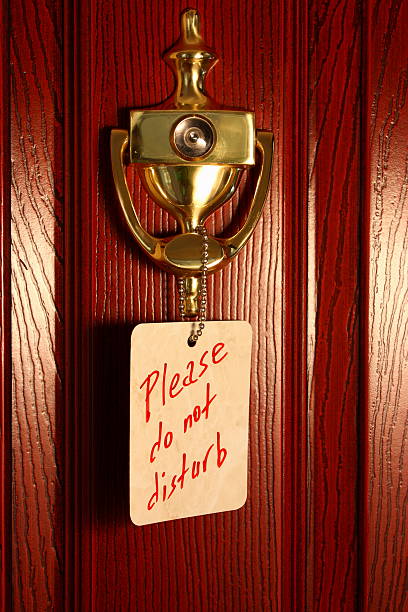 Please
do not
disturb